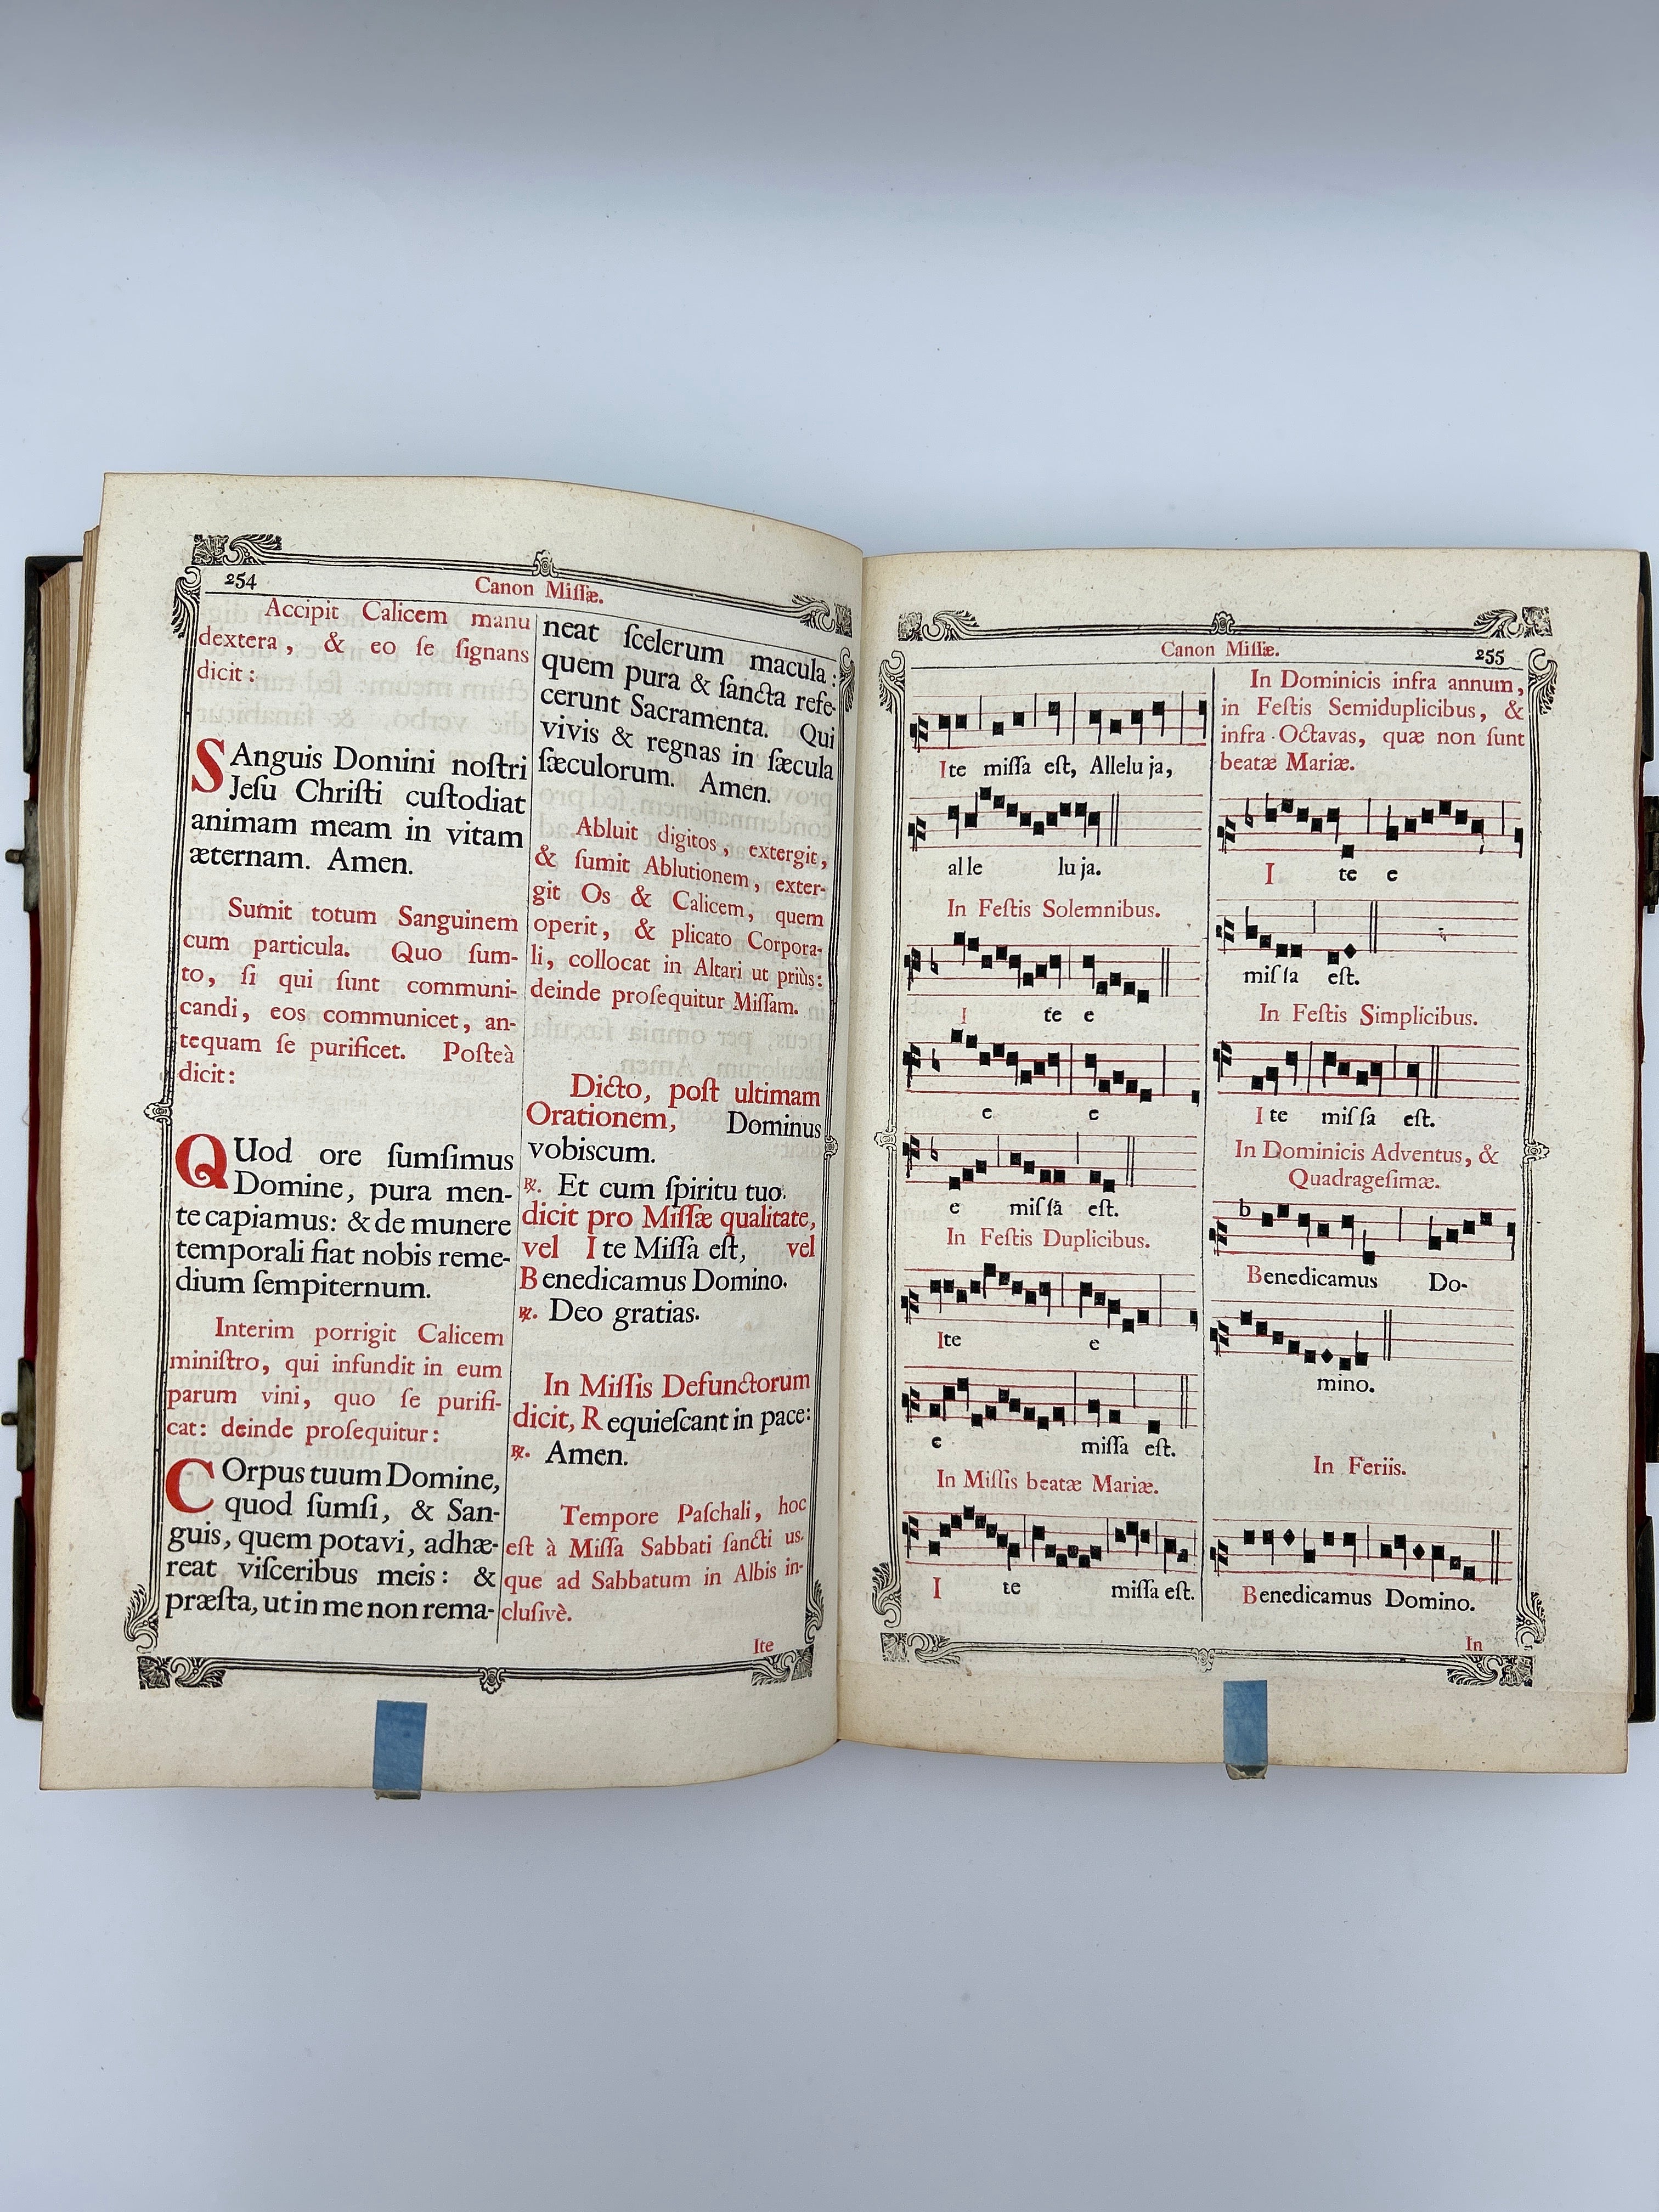 254
Canon Miſſæ.
Accipit Calicem manu
dextera, & eo ſe ſignans
dicit:
SAnguis Domini noſtri
Jeſu Chriſti cuſtodiat
animam meam in vitam
æternam. Amen.
Sumit totum Sanguinem
cum particula. Quo ſum-
to, ſi qui ſunt communi-
candi, eos communicet, an-
tequam ſe purificet. Poſteà
dicit:
QUod ore ſumſimus
Domine, pura men-
te capiamus: & de munere
temporali fiat nobis reme-
dium ſempiternum.
Interim porrigit Calicem
miniſtro, qui infundit in eum
parum vini, quo ſe purifi-
cat: deinde proſequitur:
COrpus tuum Domine,
quod ſumſi, & San-
guis, quem potavi, adhæ-
reat viſceribus meis: &
præſta, ut in me non rema-
neat ſcelerum macula:
quem pura & ſancta refe-
cerunt Sacramenta. Qui
vivis & regnas in ſæcula
ſæculorum. Amen.
Abluit digitos, extergit,
& ſumit Ablutionem, exter-
git Os & Calicem, quem
operit, & plicato Corpora-
li, collocat in Altari ut priùs:
deinde proſequitur Miſſam.
Dicto, poſt ultimam
Orationem, Dominus
vobiscum.
℟. Et cum ſpiritu tuo.
dicit pro Miſſæ qualitate,
vel Ite Miſſa eſt, vel
Benedicamus Domino.
℟. Deo gratias.
In Miſſis Defunctorum
dicit, Requieſcant in pace:
℟. Amen.
Tempore Paſchali, hoc
eſt à Miſſa Sabbati ſancti us-
que ad Sabbatum in Albis in-
cluſivè.
Ite
Canon Miſſæ.
255
Ite miſſa eſt, Allelu ja,
al le lu ja.
In Feſtis Solemnibus.
I te e
e e
e miſ ſā eſt.
In Feſtis Duplicibus.
Ite e
e miſſa eſt.
In Miſſis beatæ Mariæ.
I te miſſa eſt.
In Dominicis infra annum,
in Feſtis Semiduplicibus, &
infra Octavas, quæ non ſunt
beatæ Mariæ.
I te e
miſ ſa eſt.
In Feſtis Simplicibus.
I te miſ ſa eſt.
In Dominicis Adventus, &
Quadrageſimæ.
b
Benedicamus Do-
mino.
In Feriis.
Benedicamus Domino.
In